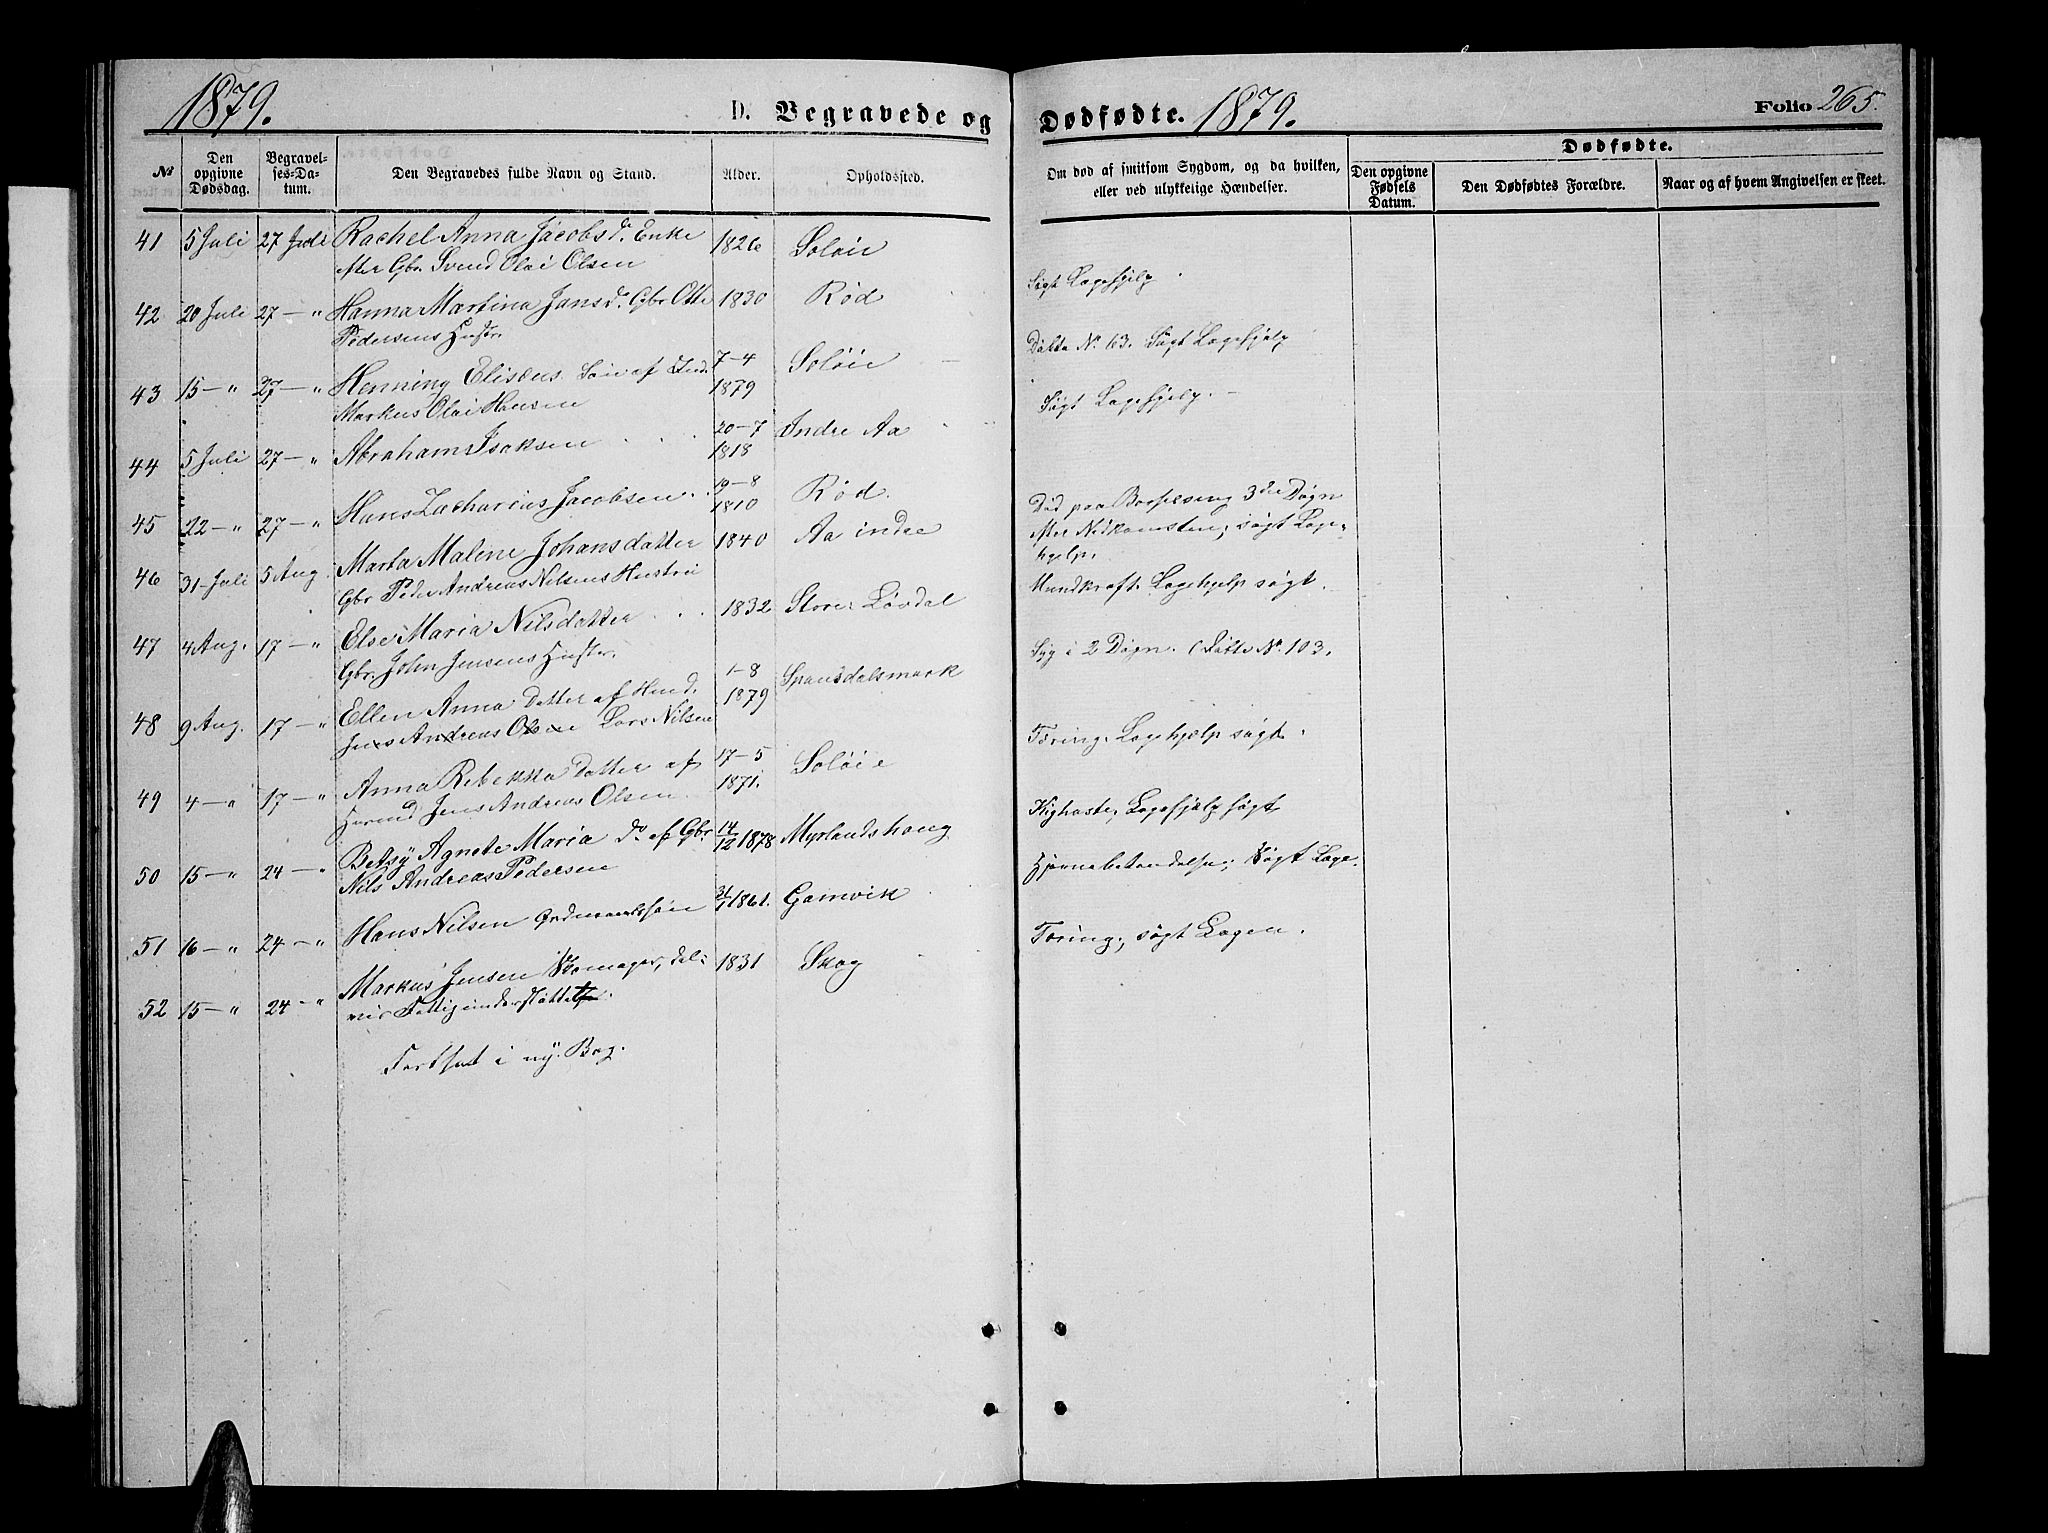 1879.
D. Begravede og
Dødfødte. 1879.
Folio 265.
№
Den opgivne Dødsdag.
Begravelses-Datum.
Den Begravedes fulde Navn og Stand.
Alder.
Opholdssted.
Om død af smitsom Sygdom, og da hvilken, eller ved ulykkelige Hændelser.
Dødfødte.
Den opgivne Fødsels Datum.
Den Dødfødtes Forældre.
Naar og af hvem Angivelsen er skeet.
41 5 Juli 27 Juli Rachel Anna Jacobsd. Enke 1826 Soløie
efter Gbr. Svend Olai Olsen
Søgt Lægehjelp
42 20 Juli 27 — " Hanna Martina Jansd. Gbr Otte 1830 Rød
Pedersens Hustr.
Datte N. 63. Søgt Lægehjelp
43 15 — " 27 — " Henning Eliseus Søn af Ind. 7-4 1879 Soløie
Markus Olai Hansen
Søgt Lægehjelp.
44 5 Juli 27 — " Abraham Isaksen 20-7 1818 Indre Aa
45 22 — " 27 — " Hans Zacharius Jacobsen 19-8 1810 Rød.
Død paa Barselseng 3die Døgn
efter Nedkomsten; søgt Læge-
hjelp.
46 31 Juli 5 Aug. Marta Malene Johansdatter 1840 Aa indre
Gbr Peder Andreas Nilsens Hustru
Mundkræft. Lægehjelp søgt.
47 4 Aug. 17 — " Else Maria Nilsdatter 1832 Store Løvdal
Gbr. John Jensens Hustr.
Syg i 2 Døgn. (Datte N. 103.
48 9 Aug. 17 — " Ellen Anna Datter af Huusd. 1-8 1879 Spansdalsmark
Jens Andreas Olsen Lars Nilsen
Tæring. Lægehjælp søgt.
49 4 — " 17 — " Anna Rebekka Datter af 17-5 1871. Soløie
Huusmd Jens Andreas Olsen
Kighoste; Lægehjelp søgt
50 15 — " 24 — " Betzy Agnete Maria do af Gbr. 14/12 1878 Myrlandshaug
Nils Andreas Pedersen
Hjernebetændelse; Søgt Læge.
51 16 — " 24 — " Hans Nilsen Ordmandssøn 31/1 1861. Gamvik
Tæring; søgt Lægen.
52 15 — " 24 — " Markus Jensen Skomager, del- 1831 Skog
vis Fattigunderstøttet.
Fortsat i ny Bog.